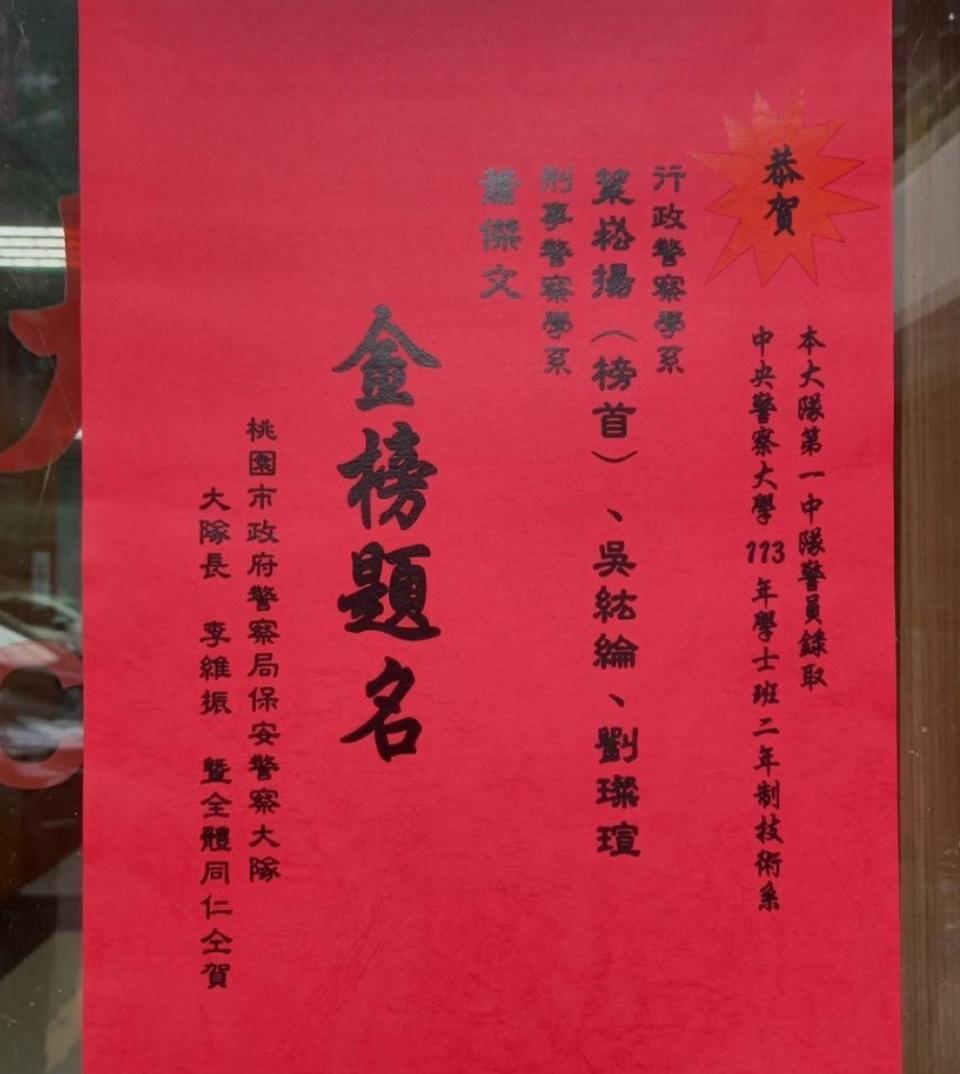 恭賀
本大隊第一中隊警員錄取
中央警察大學113年學士班二年制技術系
行政警察學系
梁崧揚（榜首）、吳紘綸、劉璨瑄
刑事警察學系
蕭傑文
金榜題名
桃園市政府警察局保安警察大隊
大隊長 李維振 暨全體同仁仝賀